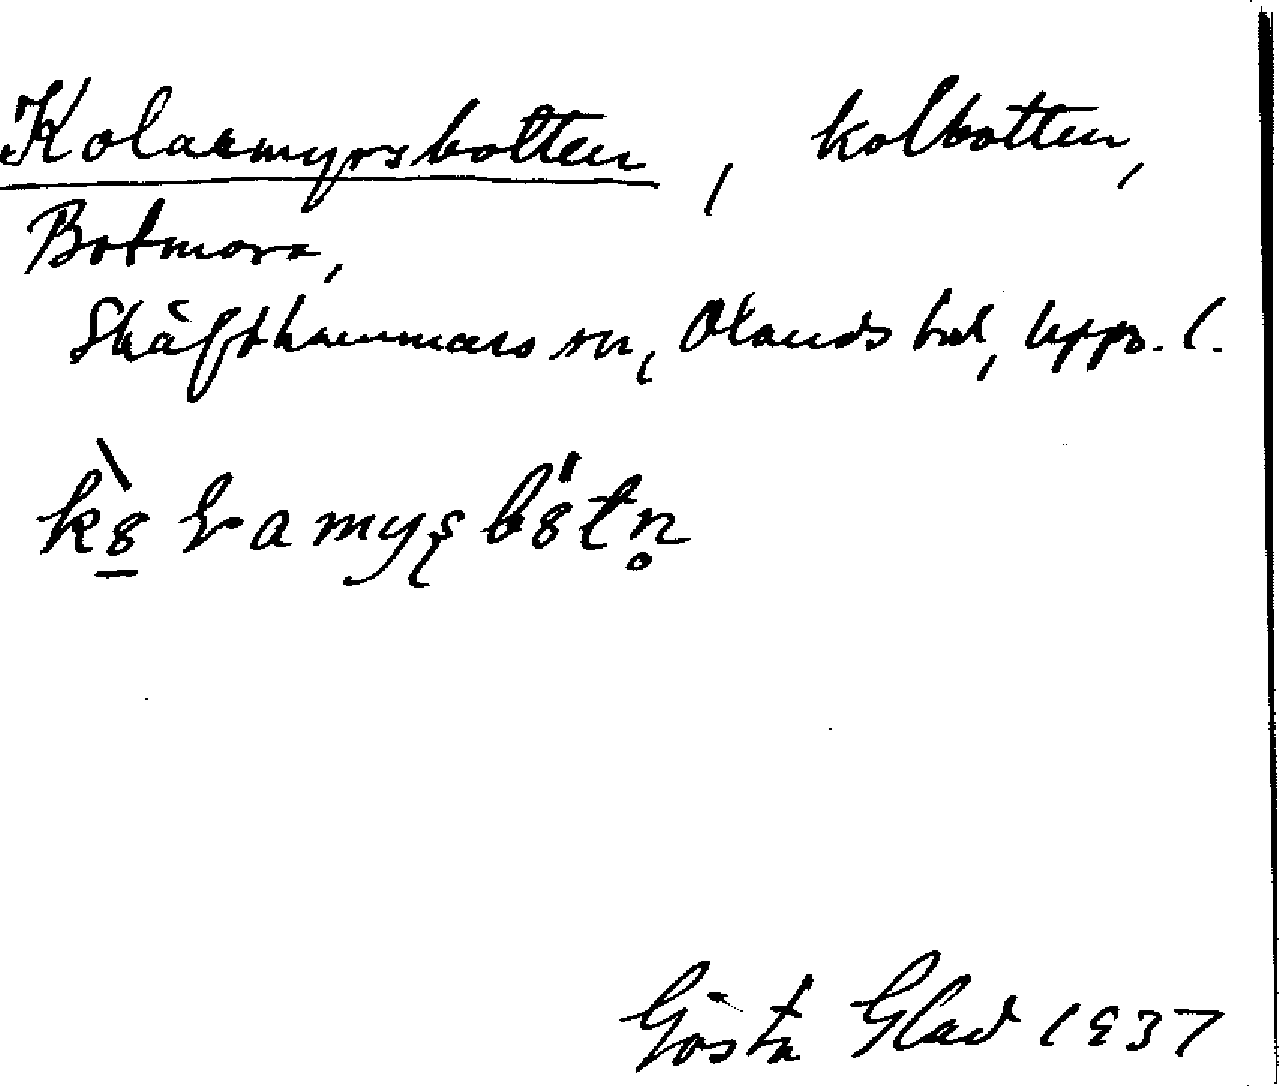 Kolarmyrsbotten, kolbotten,
Botmora,
Skäfthammars sn, Olands hd, Uppl.
Gösta Glad 1937